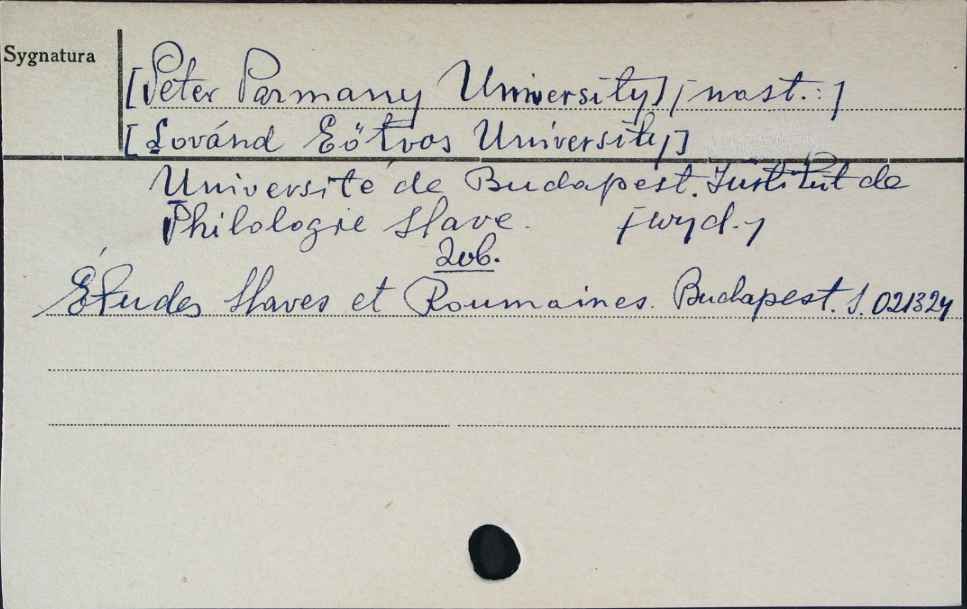 Sygnatura
[Peter Parmany University] [nast.:]
[Lovánd Eötvos University]
Université de Budapest. Institut de
Philologie Slave. [wyd.]
Zob.
Études Slaves et Roumaines. Budapest. S. 021324